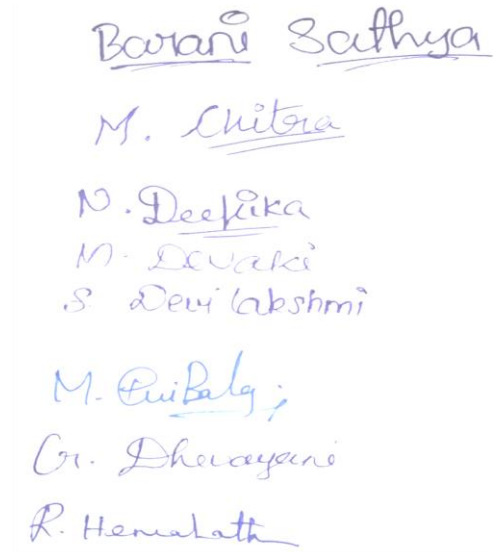 Barani Sathya
M. Chitra
N. Deepika
M. Devaki
S Devi Lakshmi
M.
G. Dhevayani
R. Hemalath